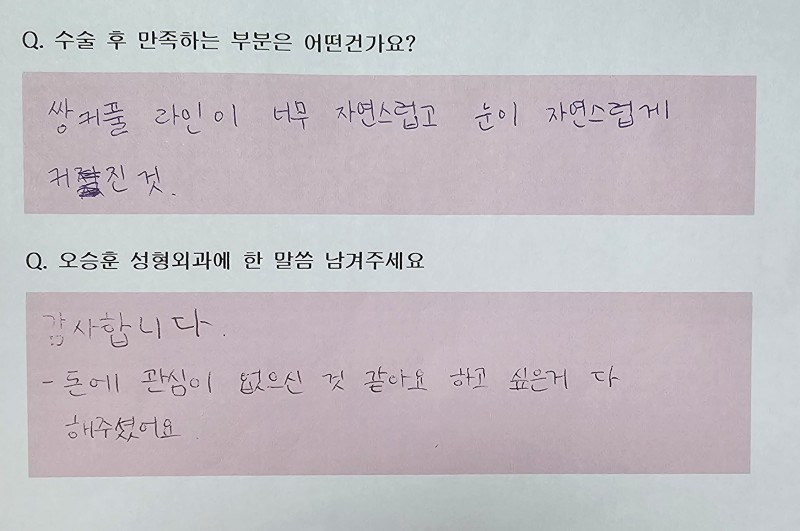 Q. 수술 후 만족하는 부분은 어떤건가요?
쌍커풀 라인이 너무 자연스럽고 눈이 자연스럽게
커진 것.
Q. 오승훈 성형외과에 한 말씀 남겨주세요
감사합니다.
- 돈에 관심이 없으신 것 같아요 하고 싶은거 다
해주셨어요.